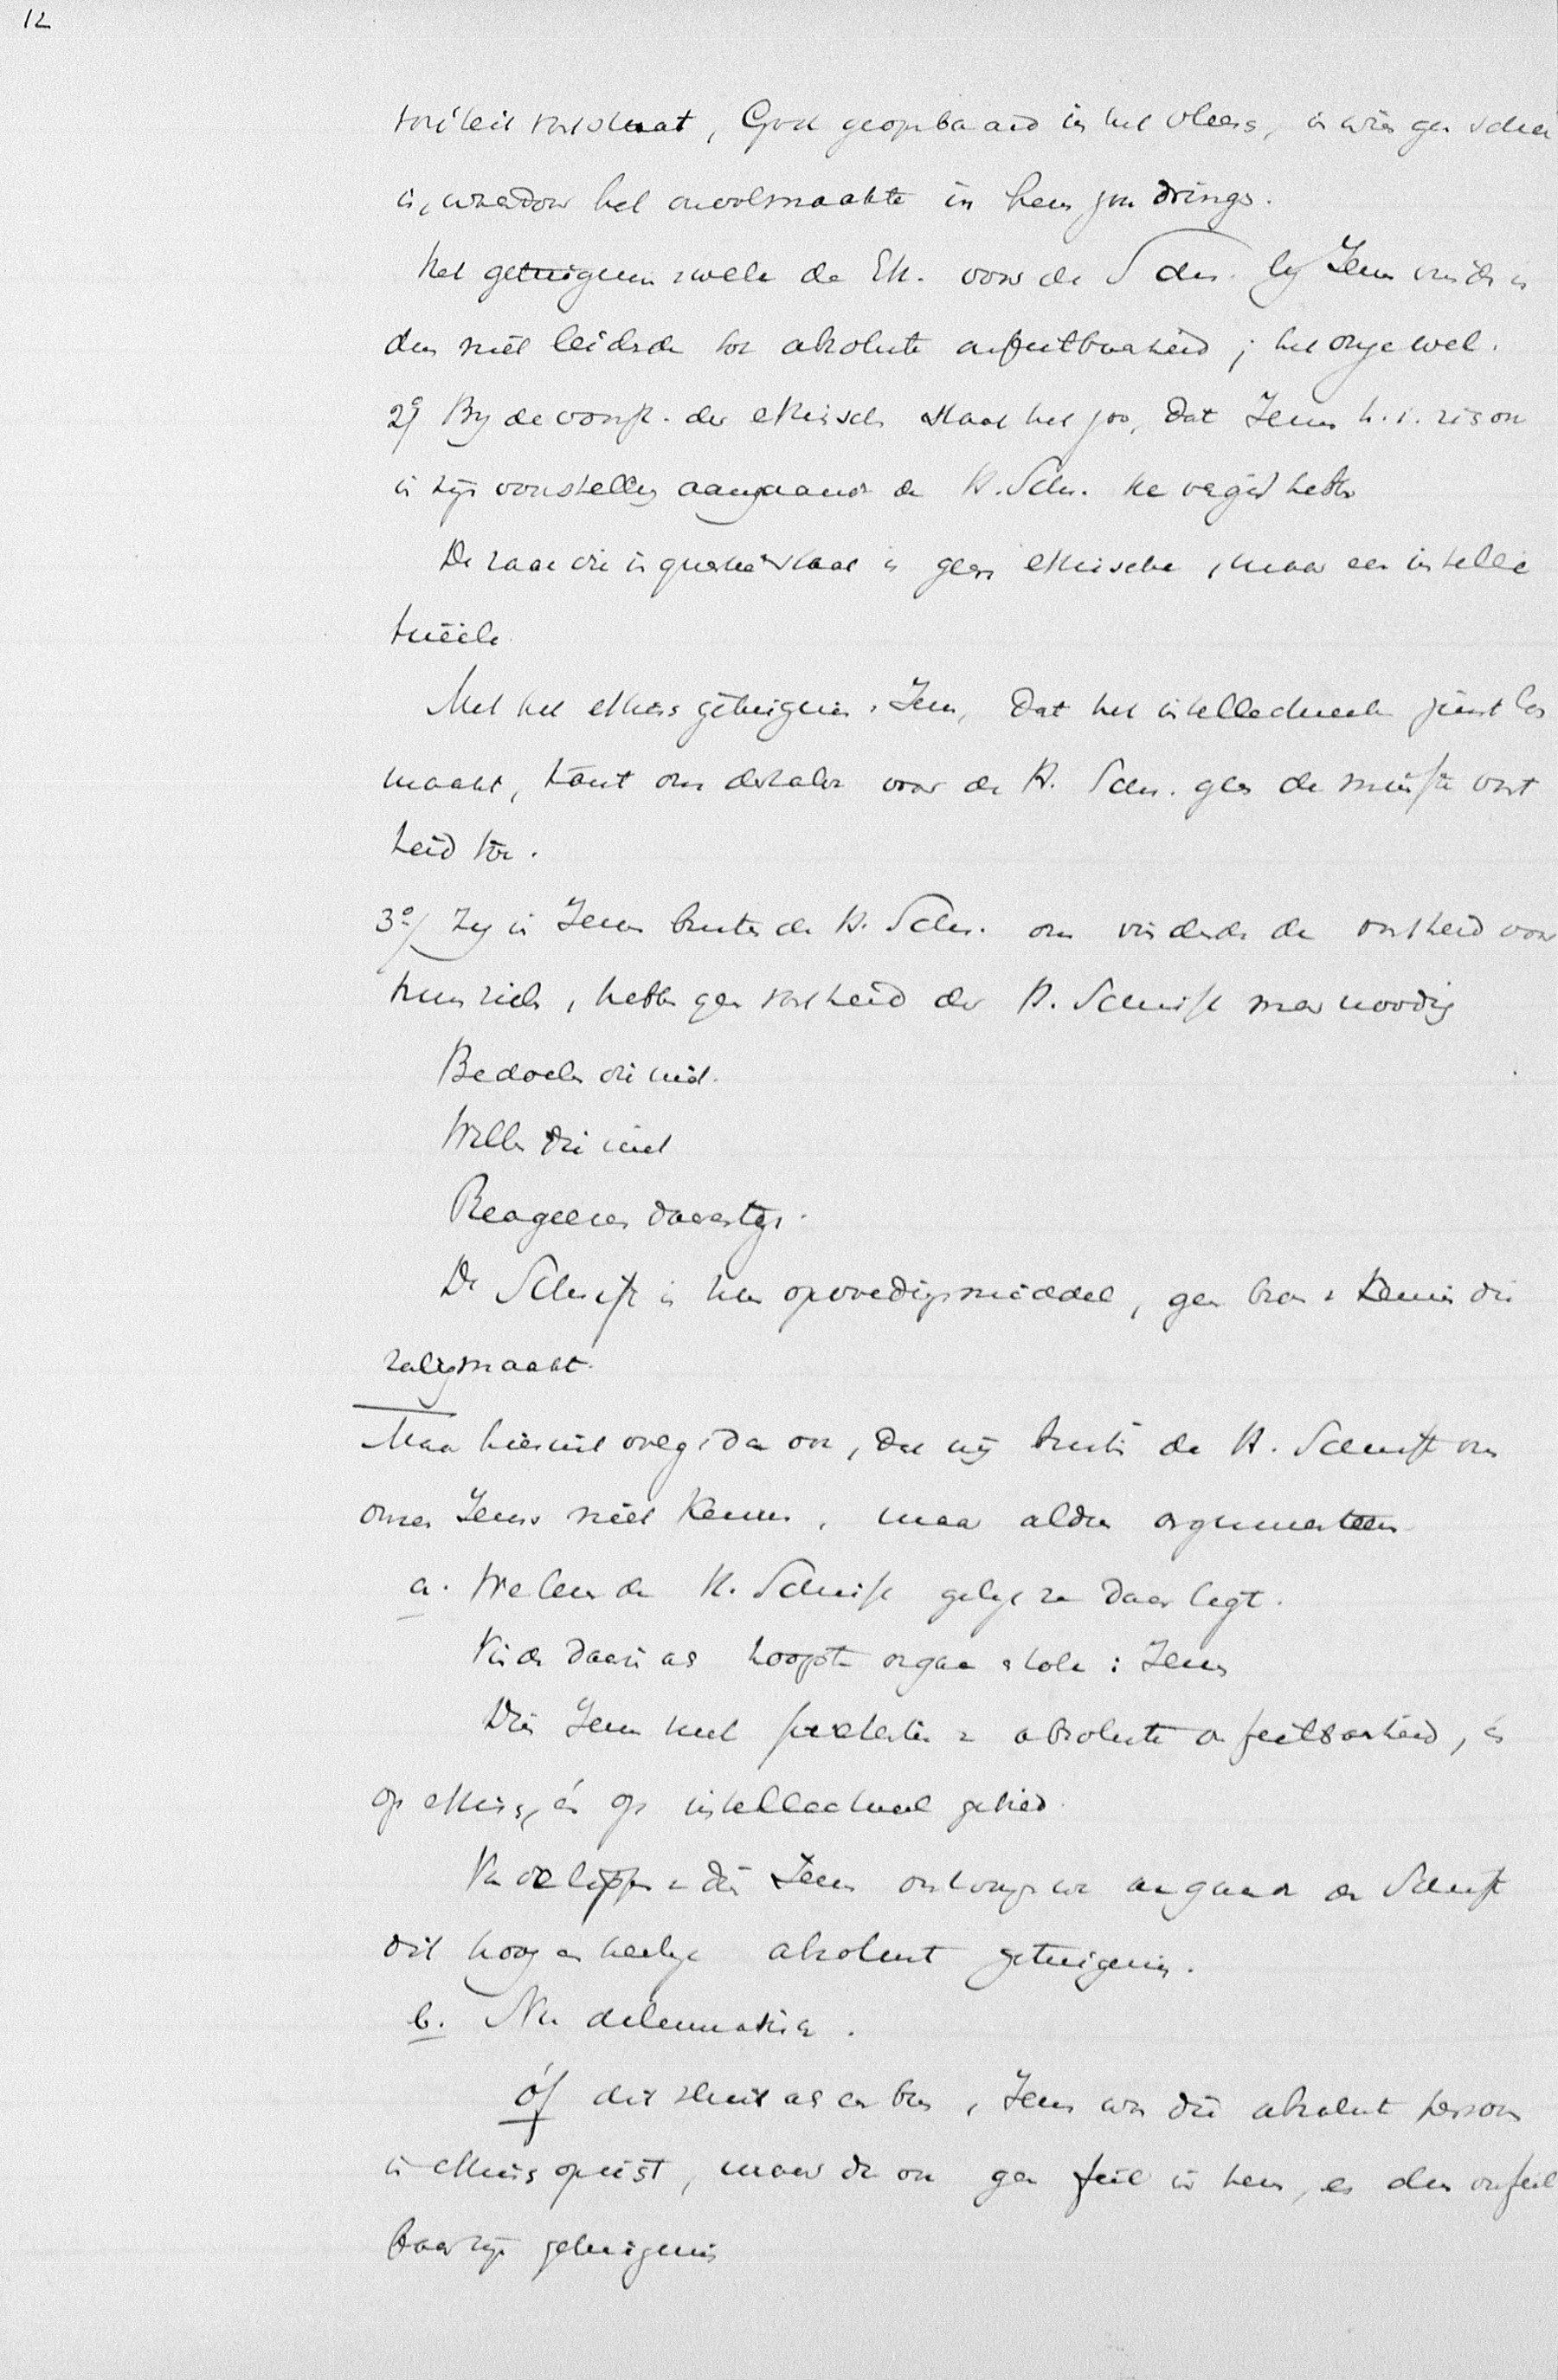 12
, God geopenbaard in het vleesch, in wien geen scheur
is, waardoor het onvolmaakte in hem zou dringen.
Het getuigenis zwelk de Eth. voor de Schr. bij Jezus vinden is
dus niet leidende tot absolute onfeilbaarheid; het onze wel.
2º/ Bij de voorst. der ethische staat het zoo, dat Jezus h. i. zich on
in zijn voorstelling aangaande de H. Schr. kan vergist hebben
De zaak die in questie staat is geen ethische, maar een intellec
tueele.
Met het ethisch getuigenis v. Jezus, dat het intellectueele juist los
maakt, komt ons derhalve voor de H. Schr. geen de minste vast
heid toe.
3º/ Zij in Jezus buiten de H. Schr. om vindende de vastheid voor
hun ziel, hebben geen vastheid der H. Schrift meer noodig
Bedoelen die niet.
Willen die niet
Reageeren daartegen.
De Schrift is hun opvoedingsmiddel, geen bron v. kennis die
zaligmaakt.
Maar hiermit volgt dan ook, dat wij buiten de H. Schrift om
onzen Jezus niet kennen, maar aldus argumenteeren
a. Nemen de H. Schrift gelijk ze daar legt.
Vinden daarin als hoogste orgaan & tolk: Jezus
Dien Jezus met praedicatie v. absolute onfeilbaarheid, én
op ethisch, én op intellectueel gebied.
Van de lippen v. dien Jezus ontvangen we aangaande de Schrift
dit hoog en heilig absoluut getuigenis.
b. Nu dilemmatisch.
óf dit sluit als een bus, Jezus was die absolute persoon
in ethisch opzicht, maar dan ook geen feil in hem, en dus onfeil
baar zijn getuigenis